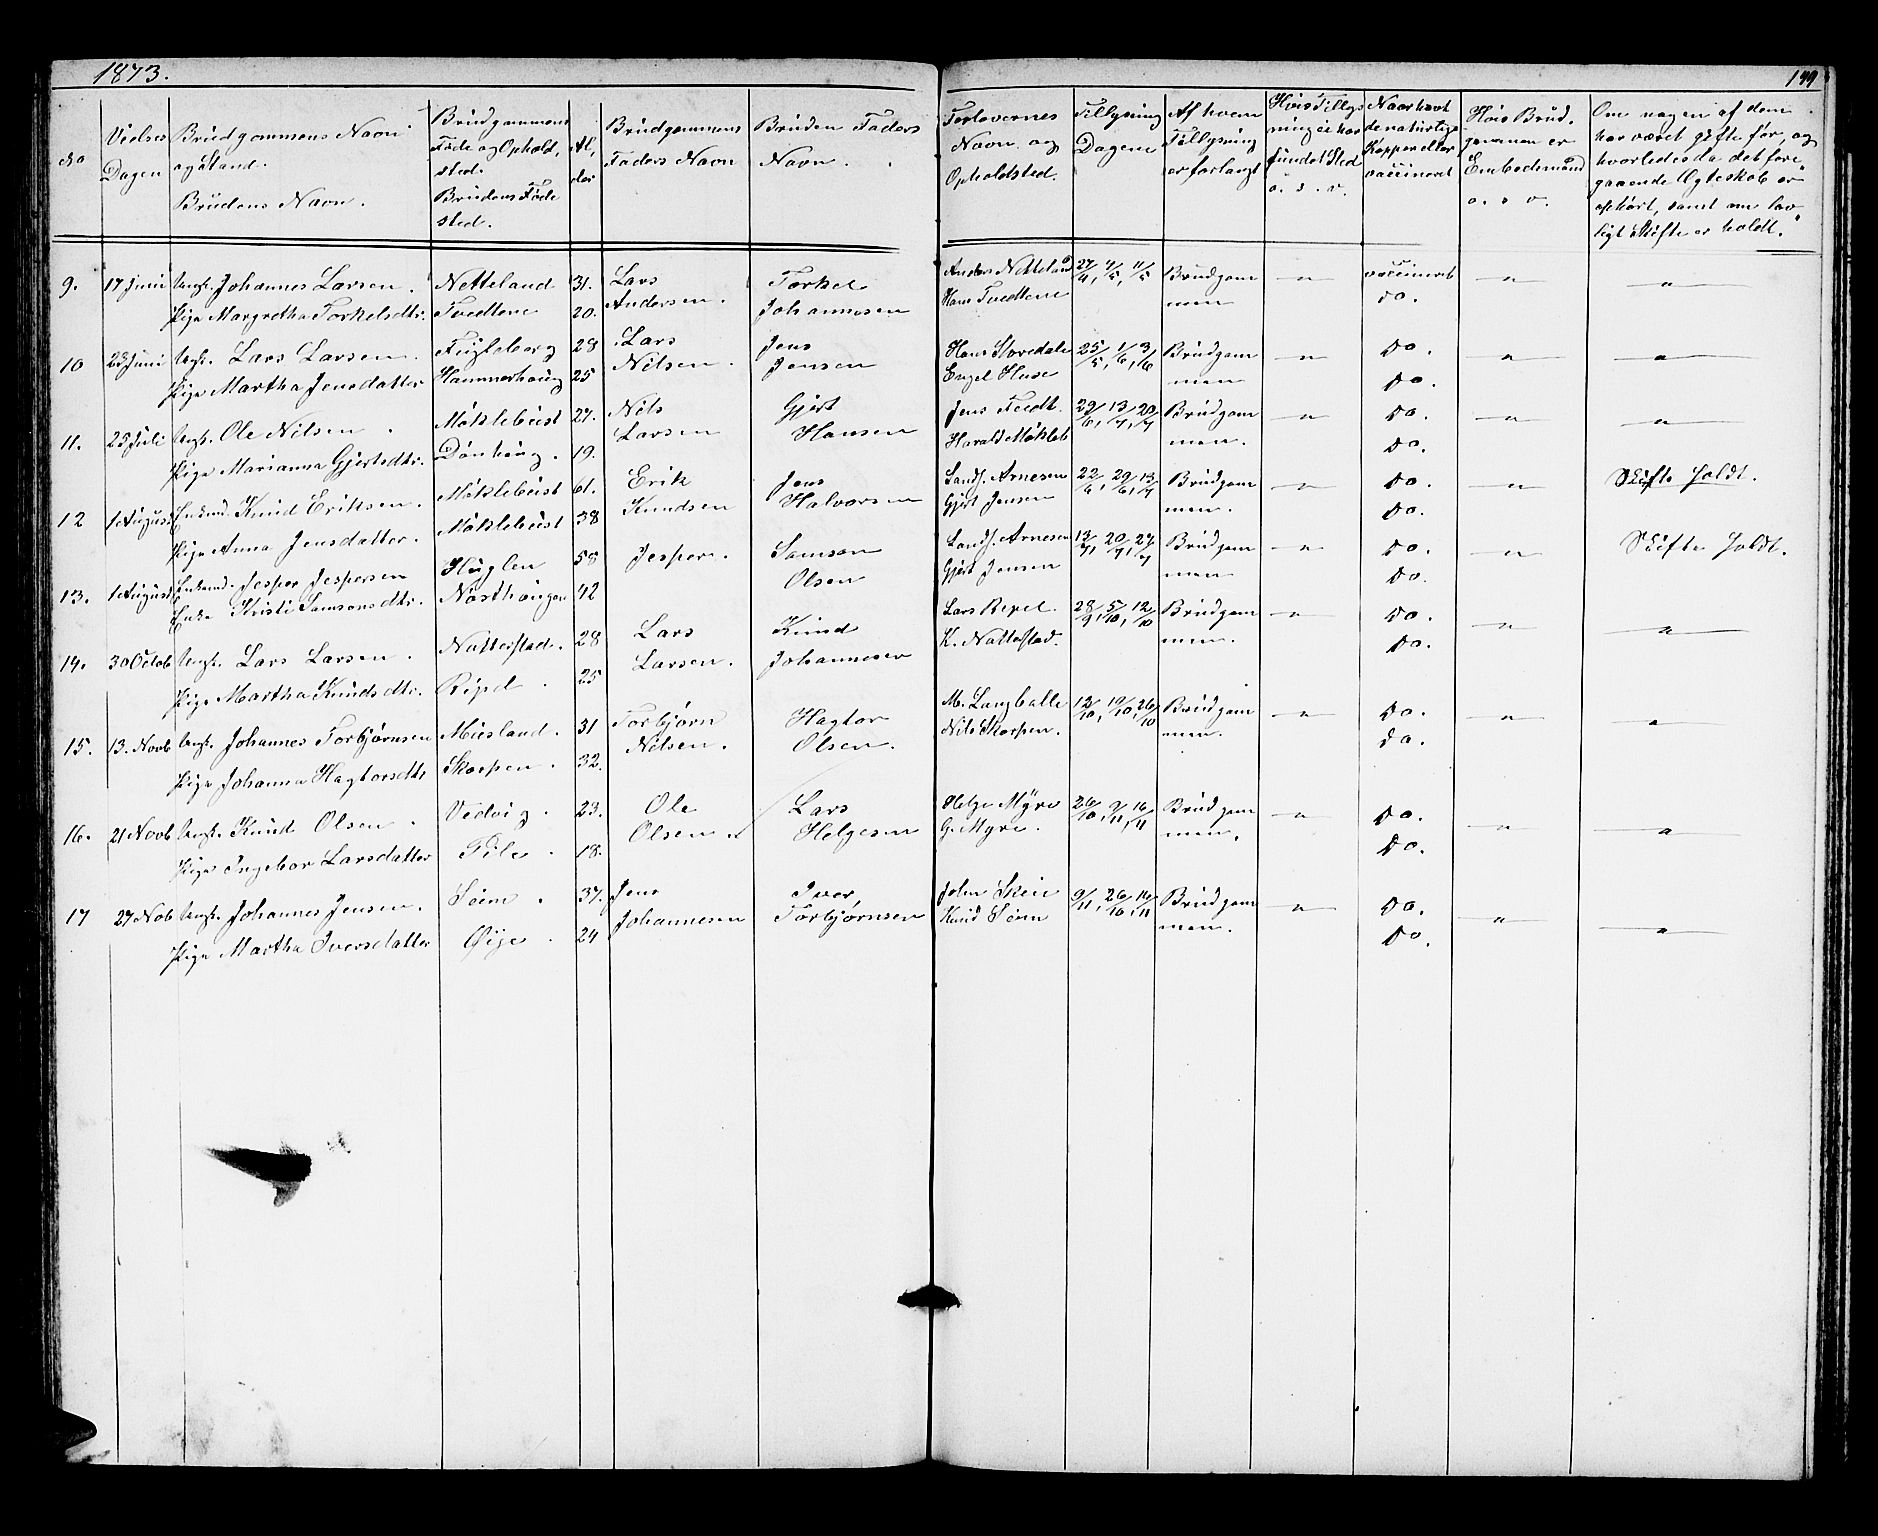 1873.
149
No
Vielses Dagen
Brudgommens Navn og Stand.
Brudens Navn.
Brudgommens Føde og Ophold, sted.
Brudens Føde sted.
Al, der
Brudgommens Faders Navn
Bruden Faders Navn.
Forlovernes Navn og Opholdsted.
Tillysning Dagene
Af hvem Tillysning er forlangt
Hvis Tillysning ei har fundet Sted o. s. v.
Naar havt de naturlige Kopper eller vaccineret
Hvis Brudgommen er Embedsmand o. s. v.
Om nogen af dem har været gifte før, og hvorledes da det foregaaende Ægteskab er ophørt, samt om lovligt Skifte er holdt.
9. 17 Juni Ungk. Johannes Larsen. Netteland 31. Lars Andersen. Torkel Johannesen Anders Netteland 27/4, 4/5, 11/5 Brudgommen " vaccineret " "
Pige Margretha Torkelsdtr. Tvedtene 20. Hans Tvedtene do.
10 23 Juni Ungk. Lars Larsen. Fugleberg 28 Lars Nilsen. Jens Jensen Hans Storedale 25/5, 1/6, 3/6 Brudgommen " do. " "
Pige Martha Jensdatter Hammerhaug 25 Engel Huse do.
11. 25 Juli Ungk. Ole Nilsen. Møklebust 27. Nils Larsen Gjert Hansen Jens Tvedt. 29/6, 13/7, 20/7 Brudgommen. " do. " "
Pige Marianna Gjertsdtr. Dønhaug. 19. Harald Mökleb do.
12 1 August Enkemd. Knud Eriksen. Møklebust 61. Erik Knudsen Jens Halvorsen Landh. Arnesen 22/6, 29/6, 13/7 Brudgommen. " do. " Skifte holdt.
Pige Anna Jensdatter. Møklebust 38 Gjert Jensen do.
13. 1 August Enkemd. Jesper Jespersen Huglen 58 Jesper. Samson Olsen Landh. Arnesen 13/7, 20/7, 27/7 Brudgommen " do. " Skifte holdt.
Enke Kristi Samsonsdtr. Næsthaugen 42 Gjert Jensen do.
14. 30 Octob Ungk. Lars Larsen. Natterstad. 28 Lars Larsen. Knud Johannesen Lars Repel. 28/9, 5/10, 12/10 Brudgommen. " do. " "
Pige Martha Knudsdtr. Ripel. 25 K. Nattestad. do.
15. 13. Novb Ungk. Johannes Torbjørnsen Musland. 31 Torbjørn Nilsen. Hagtor Olsen. M. Langballe 12/10, 19/10, 26/10 Brudgommen. " do. " "
Pige Johanna Hagtorsdtr Skorpen. 32. Nils Skorpen. do.
16. 21 Novb Ungk. Knud Olsen. Vedvig. 23. Ole Olsen. Lars Helgesen Helge Myre 26/10, 9/11, 16/11 Brudgommen. " do. " "
Pige Ingebor Larsdatter File. 18. G. Myre. do.
17 27 Nob Ungk. Johannes Jensen. Søim. 37. Jens Johannesen Iver Torbjørnsen John Skeie 9/11, 26/10, 16/11 Brudgommen. " do. " "
Pige Martha Iversdatter Øije. 24 Knud Søim do.